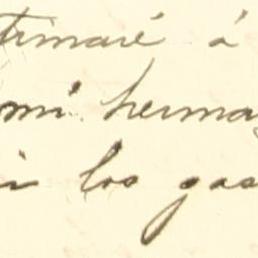 timaré á
mi herma
i los gas